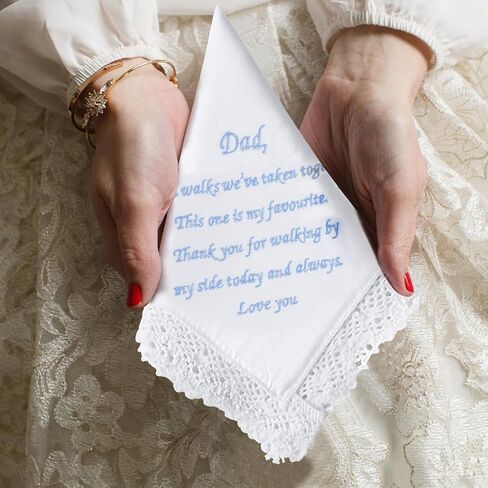 Dad,
walks we've taken
This one is my favourite.
Thank you for walking by
my side today and always.
Love you